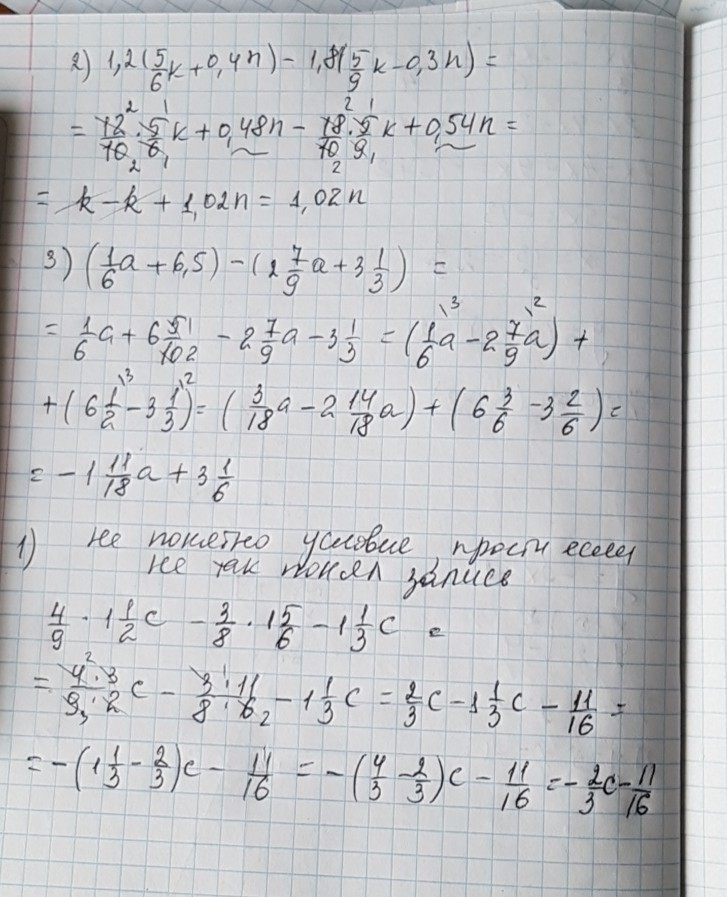 2) 1,2(5/6 k + 0,4n) - 1,8(5/9 k - 0,3n) =
= 12/10 · 5/6 k + 0,48n - 18/10 · 5/9 k + 0,54n =
= k - k + 1,02n = 1,02n
3) (1/6 a + 6,5) - (2 7/9 a + 3 1/3) =
= 1/6 a + 6 5/10 - 2 7/9 a - 3 1/3 = (1/6 a - 2 7/9 a) +
+ (6 1/2 - 3 1/3) = (3/18 a - 2 14/18 a) + (6 3/6 - 3 2/6) =
= -1 11/18 a + 3 1/6
1) не понятно условие, прости если
не так понял запись
4/9 · 1 1/2 c - 3/8 · 1 5/6 - 1 1/3 c =
= 4·3/9·2 c - 3·11/8·6 - 1 1/3 c = 2/3 c - 1 1/3 c - 11/16 =
= -(1 1/3 - 2/3)c - 11/16 = -(4/3 - 2/3)c - 11/16 = -2/3 c - 11/16